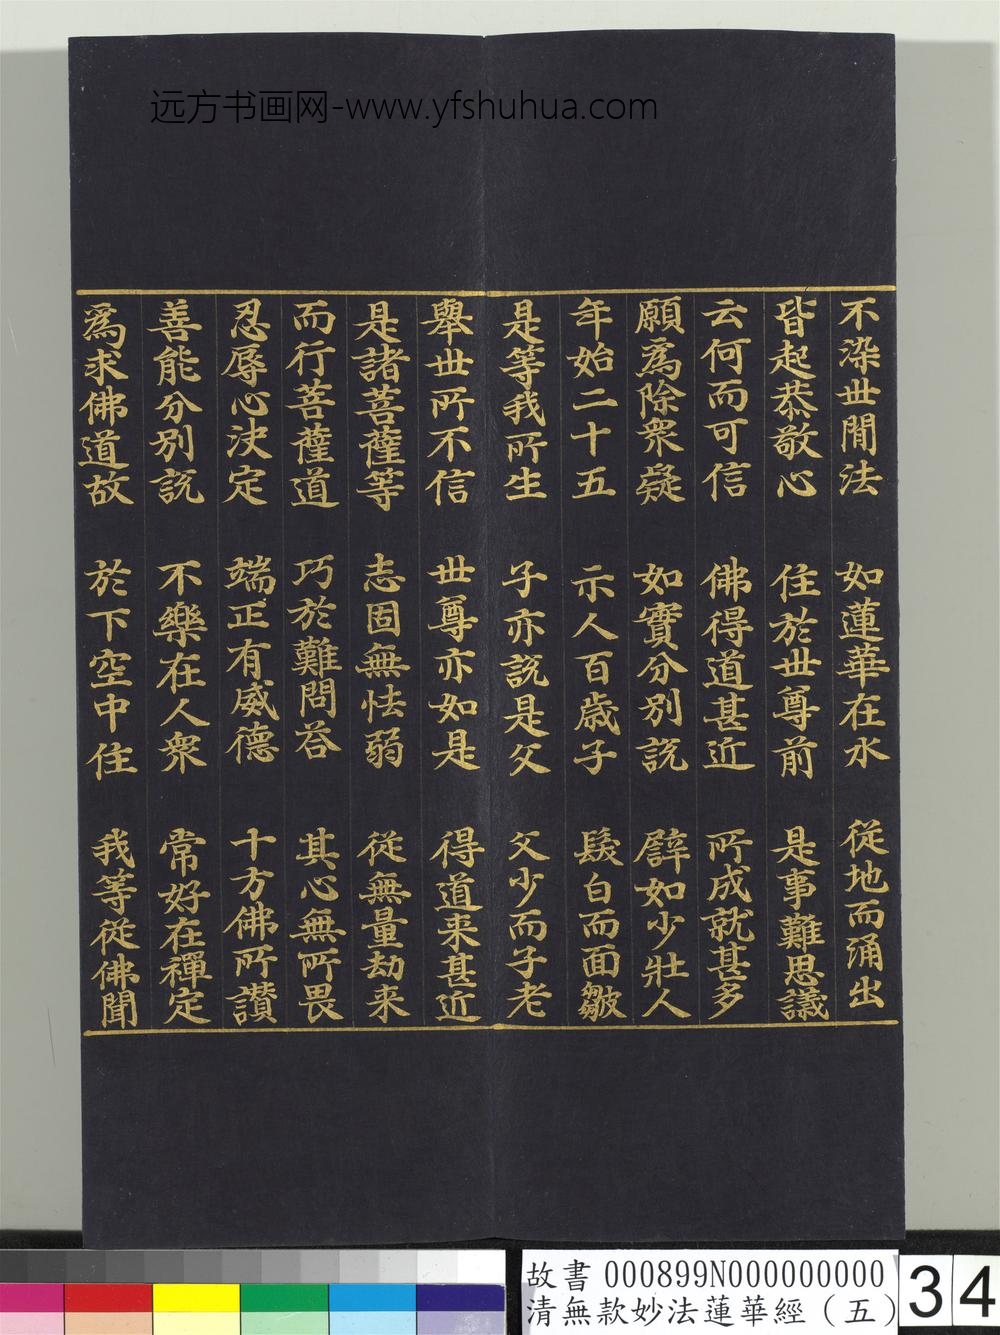 远方书画网-www.yfshuhua.com
不染世閒法 如蓮華在水 從地而涌出
皆起恭敬心 住於世尊前 是事難思議
云何而可信 佛得道甚近 所成就甚多
願為除衆疑 如實分別説 譬如少壯人
年始二十五 示人百歳子 髮白而面皺
是等我所生 子亦説是父 父少而子老
舉世所不信 世尊亦如是 得道来甚近
是諸菩薩等 志固無怯弱 從無量劫来
而行菩薩道 巧於難問答 其心無所畏
忍辱心決定 端正有威德 十方佛所讃
善能分別説 不樂在人衆 常好在禪定
為求佛道故 於下空中住 我等從佛聞
故書 000899N000000000
清無款妙法蓮華經（五）
34